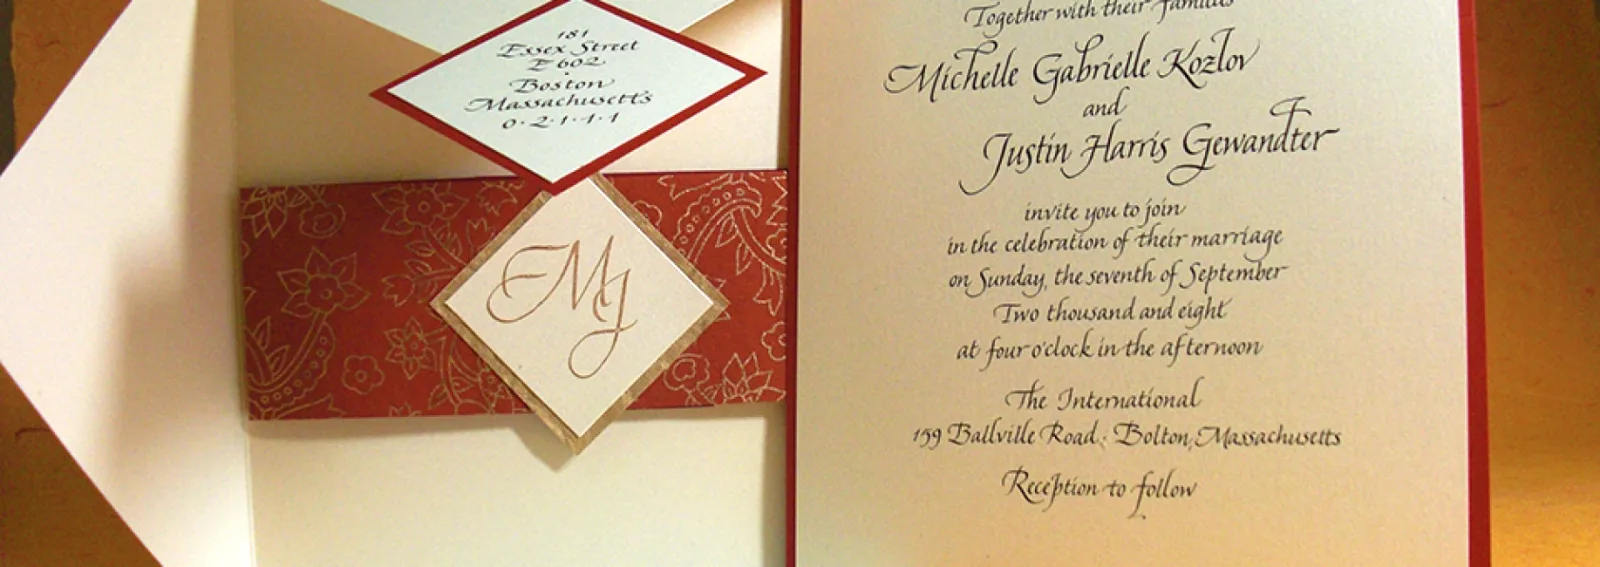 181
Essex Street
E 602
Boston
Massachusetts
0·2·1·1·1
MJ
Together with their families
Michelle Gabrielle Kozlov
and
Justin Harris Gewandter
invite you to join
in the celebration of their marriage
on Sunday, the seventh of September
Two thousand and eight
at four o'clock in the afternoon
The International
159 Ballville Road · Bolton, Massachusetts
Reception to follow